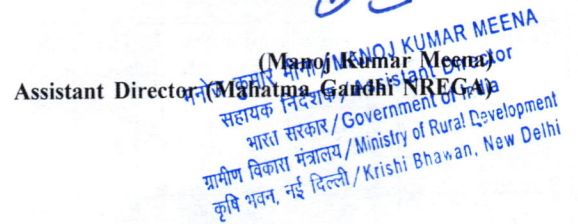 (Manoj Kumar Meena)
Assistant Director (Mahatma Gandhi NREGA)
मनोज कुमार मीना / MANOJ KUMAR MEENA
सहायक निदेशक / Assistant Director
भारत सरकार / Government of India
ग्रामीण विकास मंत्रालय / Ministry of Rural Development
कृषि भवन, नई दिल्ली / Krishi Bhawan, New Delhi